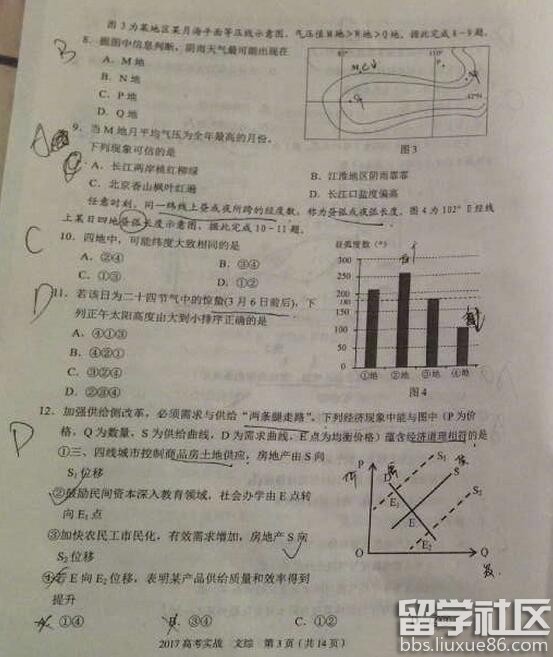 图 3 为某地区某月海平面等压线示意图，气压值 M 地＞N 地＞Q 地。据此完成 8－9 题。
8．据图中信息判断，阴雨天气最可能出现在
B
A．M 地
B．N 地
C．P 地
D．Q 地
110°
42°N
图 3
9．当 M 地月平均气压为全年最高的月份，
下列现象可信的是
A
A．长江两岸桃红柳绿
B．江淮地区阴雨霏霏
C．北京香山枫叶红遍
D．长江口盐度偏高
任意时刻，同一纬线上昼或夜所跨的经度数，称为昼弧或夜弧长度。图 4 为 102° E 经线
上某日四地昼弧长度示意图，据此完成 10－11 题。
10．四地中，可能纬度大致相同的是
C
A．②④
B．③④
C．①③
D．①②
11．若该日为二十四节气中的惊蛰(3 月 6 日前后)，下
列正午太阳高度由大到小排序正确的是
D
A．④①③
B．④②①
C．③②④
D．②③④
昼弧度数（°）
300
250
200
180
150
100
50
0
①地 ②地 ③地 ④地
图 4
12．加强供给侧改革，必须需求与供给“两条腿走路”。下列经济现象中能与图中（P 为价
格，Q 为数量，S 为供给曲线，D 为需求曲线，E 点为均衡价格）蕴含经济道理相符的是
D
①三、四线城市控制商品房土地供应，房地产由 S 向
S₁ 位移
②鼓励民间资本深入教育领域，社会办学由 E 点转
向 E₁ 点
③加快农民工市民化，有效需求增加，房地产 S 向
S₂ 位移
④若 E 向 E₂ 位移，表明某产品供给质量和效率得到
提升
P
D
S₁
S
S₂
E₁
E
E₂
O
Q
A．①④
B．③④
C．①②
2017 高考实战 文综 第 3 页（共 14 页）
留学社区
bbs.liuxue86.com